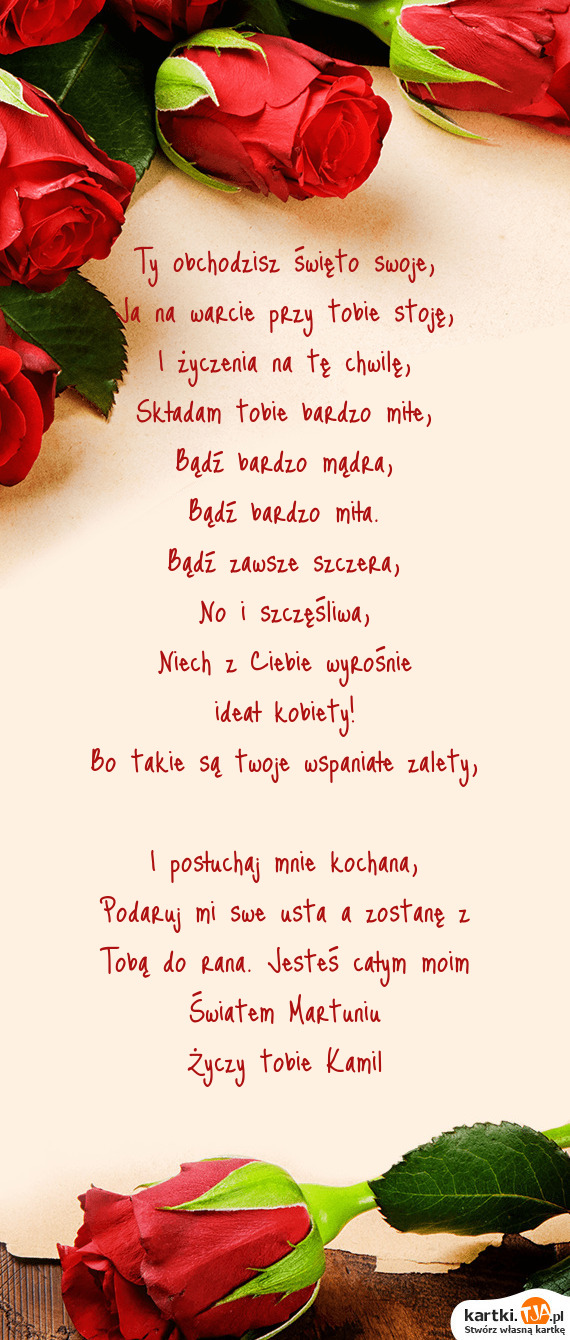 Ty obchodzisz święto swoje,
Ja na warcie przy tobie stoję,
I życzenia na tę chwilę,
Składam tobie bardzo miłe,
Bądź bardzo mądra,
Bądź bardzo miła.
Bądź zawsze szczera,
No i szczęśliwa,
Niech z Ciebie wyrośnie
ideał kobiety!
Bo takie są twoje wspaniałe zalety,
I posłuchaj mnie kochana,
Podaruj mi swe usta a zostanę z
Tobą do rana. Jesteś całym moim
Światem Martuniu
Życzy tobie Kamil
kartki.TJA.pl
Stwórz własną kartkę